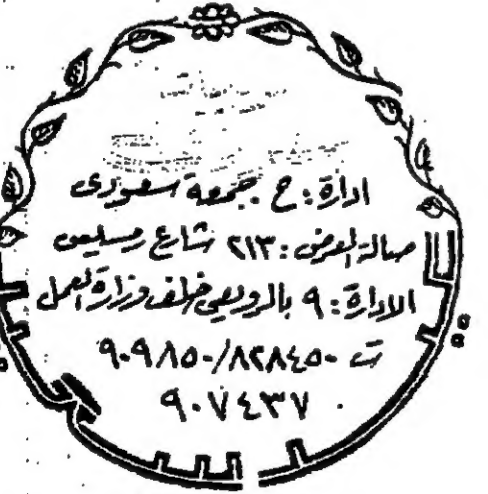 ادارة: ح. جمعة سعودى
صالة العرض: ٢١٣ شارع رمسيس
الادارة: ٩ بالرويعى خلف وزارة العمل
ت ٨٢٨٤٥٠/٩٠٩٨٥٠
٩٠٧٤٣٧